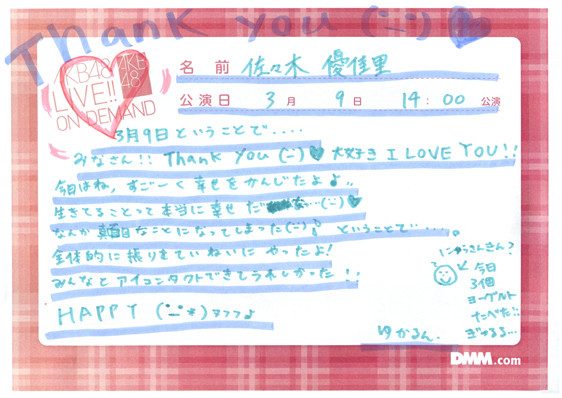 Thank you (·-·)
AKB48 SKE48
LIVE!!
ON DEMAND
名前 佐々木 優佳里
公演日 3月 9日 14:00 公演
3月9日ということで‥‥
みなさん!! Thank you (·-·)♥ 大好き I LOVE YOU!!
今日はね、すごーく幸せをかんじたよ♪。
生きてることって本当に幸せだ ‥(·-·)♡
なんか 真面目なことになってしまった(·-·)! ということで‥‥。
全体的に振りをていねいにやったよ!
みんなとアイコンタクトできてうれしかった!!
HAPPY (·-·*)ヌフフ♪
にゅうさんきん?
今日
3個
ヨーグルト
たべた!!
ぎゅるる…
ゆかるん.
DMM.com